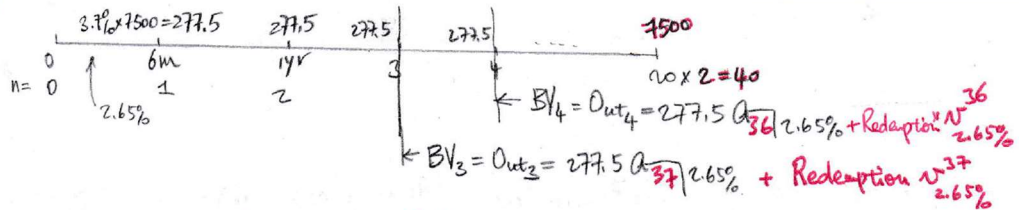 3.7%×7500=277.5 277.5 277.5 277.5 .... 7500
0 6m 1yr 3 4 20×2=40
n= 0 1 2
2.65%
BV₄ = Out₄ = 277.5 a36|2.65% + Redemption v³⁶ 2.65%
BV₃ = Out₃ = 277.5 a37|2.65% + Redemption v³⁷ 2.65%